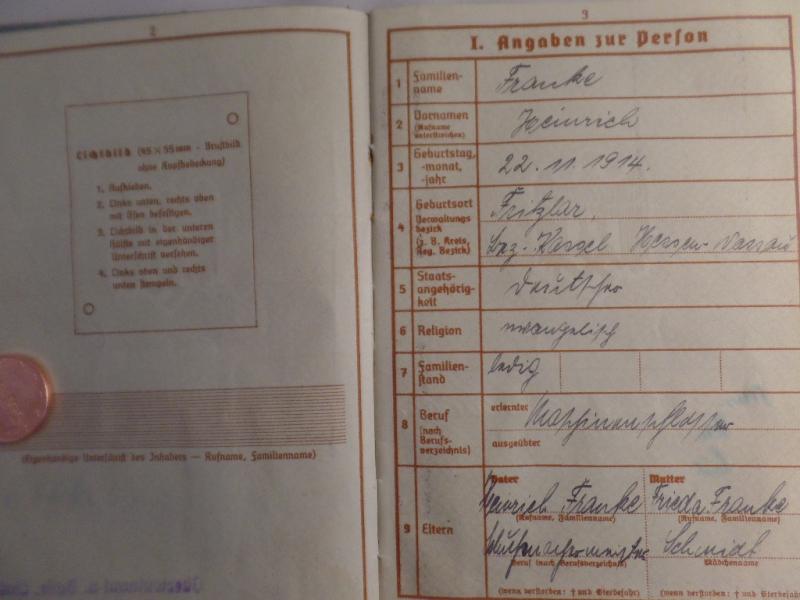 2
Lichtbild (45 × 55 mm - Brustbild
ohne Kopfbedeckung)
1. Aufkleben.
2. Links unten, rechts oben
mit Ösen befestigen.
3. Lichtbild in der unteren
Hälfte mit eigenhändiger
Unterschrift versehen.
4. Links oben und rechts
unten stempeln.
(Eigenhändige Unterschrift des Inhabers — Rufname, Familienname)
3
I. Angaben zur Person
1 Familien-
name
Franke
2 Vornamen
(Rufname
unterstreichen)
Heinrich
3 Geburtstag,
-monat,
-jahr
22. 11. 1914.
4 Geburtsort
Verwaltungs-
bezirk
(z. B. Kreis,
Reg. Bezirk)
Fritzlar,
Bez. Kassel Hessen-Nassau
5 Staats-
angehörig-
keit
Deutscher
6 Religion
evangelisch
7 Familien-
stand
ledig
8 Beruf
(nach
Berufs-
verzeichnis)
erlernter Maschinenschlosser
ausgeübter
9 Eltern
Vater Mutter
Heinrich Franke Frieda Franke
(Rufname, Familienname) (Rufname, Familienname)
Schuhmachermeister Schmidt
Beruf (nach Berufsverzeichnis) Mädchenname
(wenn verstorben: † und Sterbejahr) (wenn verstorben: † und Sterbejahr)